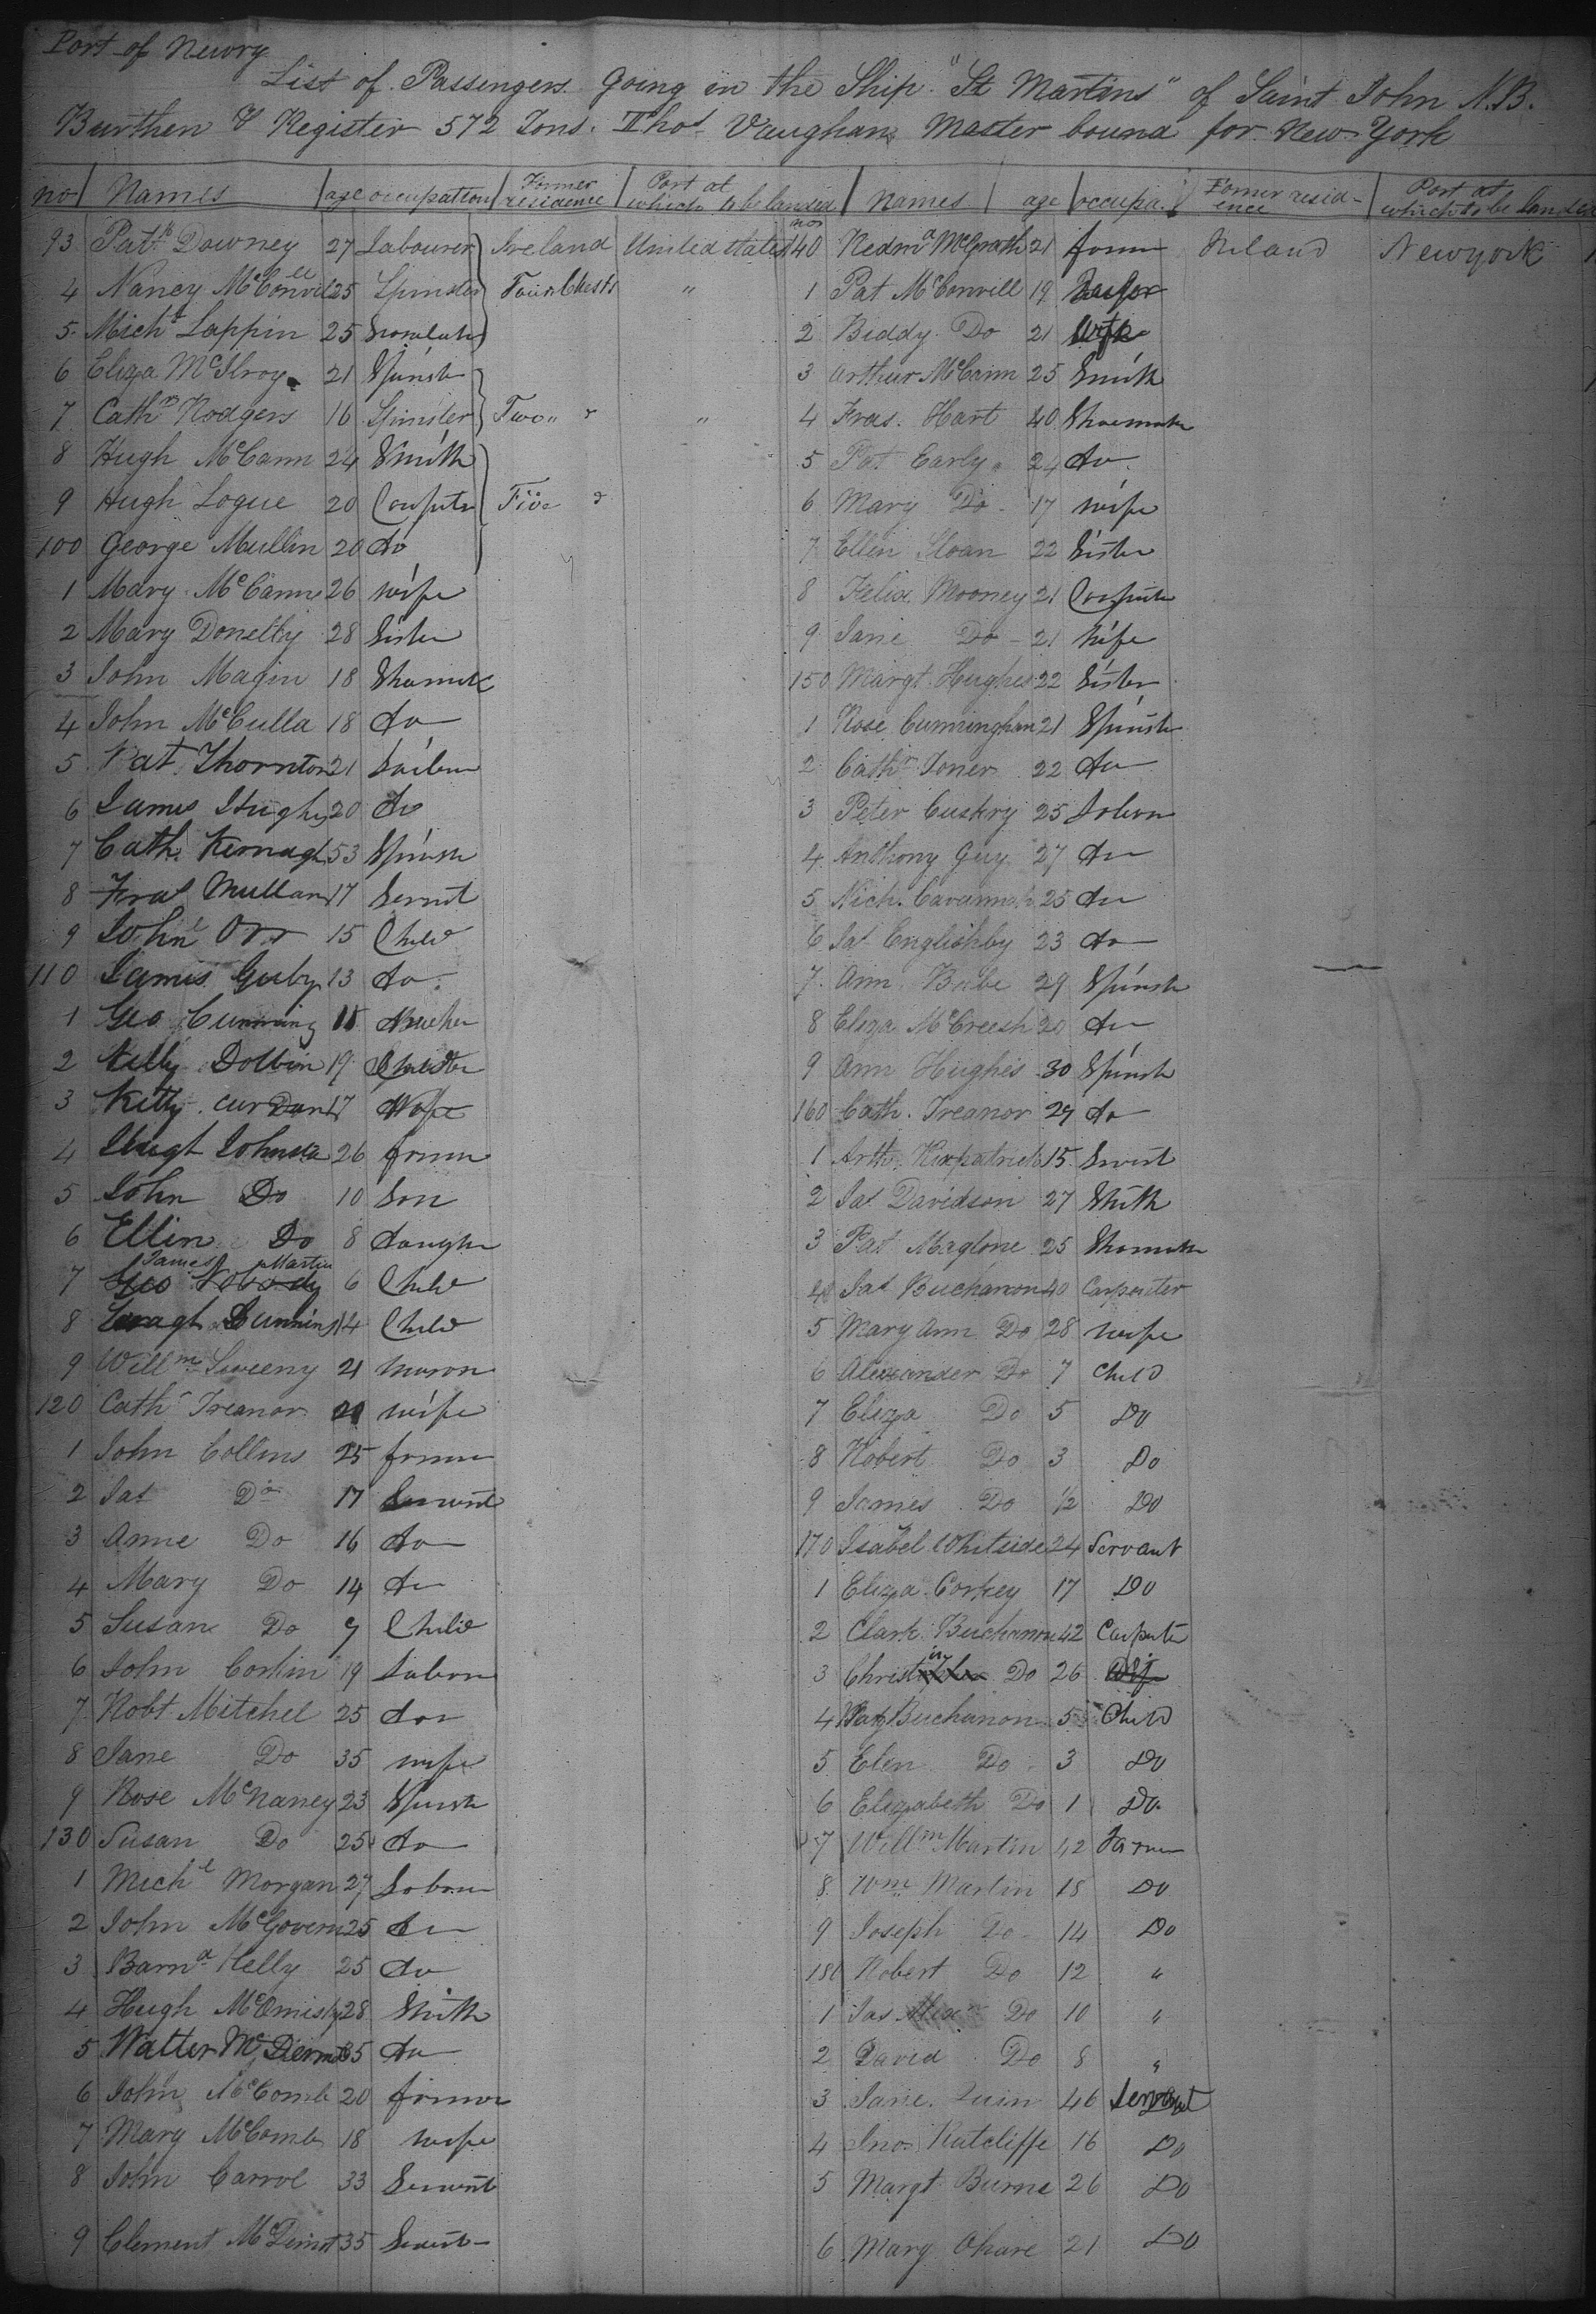 Port of Newry
List of Passengers Going in the Ship "St Martins" of Saint John N.B.
Burthen & Register 572 Tons. Thos Vaughan Master bound for New York
no Names age occupation Former residence Port at which to be landed
93 Patk Downey 27 Labourer Ireland United States
4 Nancy McConvill 25 Spinster Four Chests "
5 Michl Lappin 25
6 Eliza McIlroy 21 Spinstr
7 Cathn Rodgers 16 Spinster Two " "
8 Hugh McCann 24 Smith
9 Hugh Logue 20 Five
100 George Mullin 20 do
1 Mary McCann 26 wife
2 Mary Donelly 28 Sister
3 John Magin 18
4 John McCulla 18 do
5 Pat Thornton 21
6 James Hughs 20 do
7 Cath Kernagh 53 Spinstr
8 Fras Mullan 17 Servnt
9 John Orr 15 Child
110 James 13 do
1 Geo Cunning
2 Dolbin 19
3 Kitty 17
4 Hugh 26 farmer
5 John Do 10 Son
6 Ellin Do 8
7 James Martin 6 Child
8 14 Child
9 Willm Sweeny 21 mason
120 Cath Treanor wife
1 John Collins 25 farmer
2 Jas Do 17 Servant
3 Anne Do 16 do
4 Mary Do 14 do
5 Susan Do 9 Child
6 John 19
7 Robt Mitchel 25 do
8 Jane Do 35 wife
9 Rose McNaney 23 Spinstr
130 Susan Do 25 do
1 Michl Morgan 27
2 John McGovern 25 do
3 Barnd Kelly 25 do
4 Hugh 28 Smith
5 Walter McDermot 35 do
6 John McComb 20 farmer
7 Mary McComb 18 wife
8 John Carrol 33 Servant
9 Clement 35
nos Names age occupa. Former residence Port at which to be landed
140 McGrath 21 Ireland New york
1 Pat McConvill 19
2 Biddy Do 21 wife
3 Arthur McCann 25 Smith
4 Fras. Hart 40
5 Pat Early 24 do
6 Mary Do 17 wife
7 Ellen Sloan 22 Sister
8 Felix Mooney 21
9 Jane Do 21 wife
150 Margt Hughes 22 Sister
1 Rose Cunningham 21 Spinstr
2 Cathn Toner 22 do
3 Peter Cuskry 25
4 Anthony Guy 27 do
5 Nich. Cavannah 25 do
6 Jas Englishby 23 do
7 Ann Babe 29 Spinstr
8 Eliza McCreesh 20 do
9 Ann Hughes 30 Spinstr
160 Cath. Treanor 24 do
1 Arthr Kirpatrick 15
2 Jas Davidson 27 Smith
3 Pat Maglone 25
4 Jas Buchanon 40 Carpenter
5 Mary Ann Do 28 wife
6 Alexander Do 7 Child
7 Eliza Do 5 Do
8 Robert Do 3 Do
9 James Do 1/2 Do
170 Isabel Whitside 24 Servant
1 Eliza Corkey 17 Do
2 Clark Buchanon 42
3 Do 26
4 Buchanon 5 Child
5 Elen Do 3 Do
6 Elizabeth Do 1 Do
7 Willm Martin 42
8 Wm Martin 18 Do
9 Joseph Do 14 Do
180 Robert Do 12 "
1 Jas Do 10 "
2 David Do 8 "
3 Jane Quin 46 Servant
4 Jno Rutcliffe 16 Do
5 Margt Burns 26 Do
6 Mary Ohare 21 Do